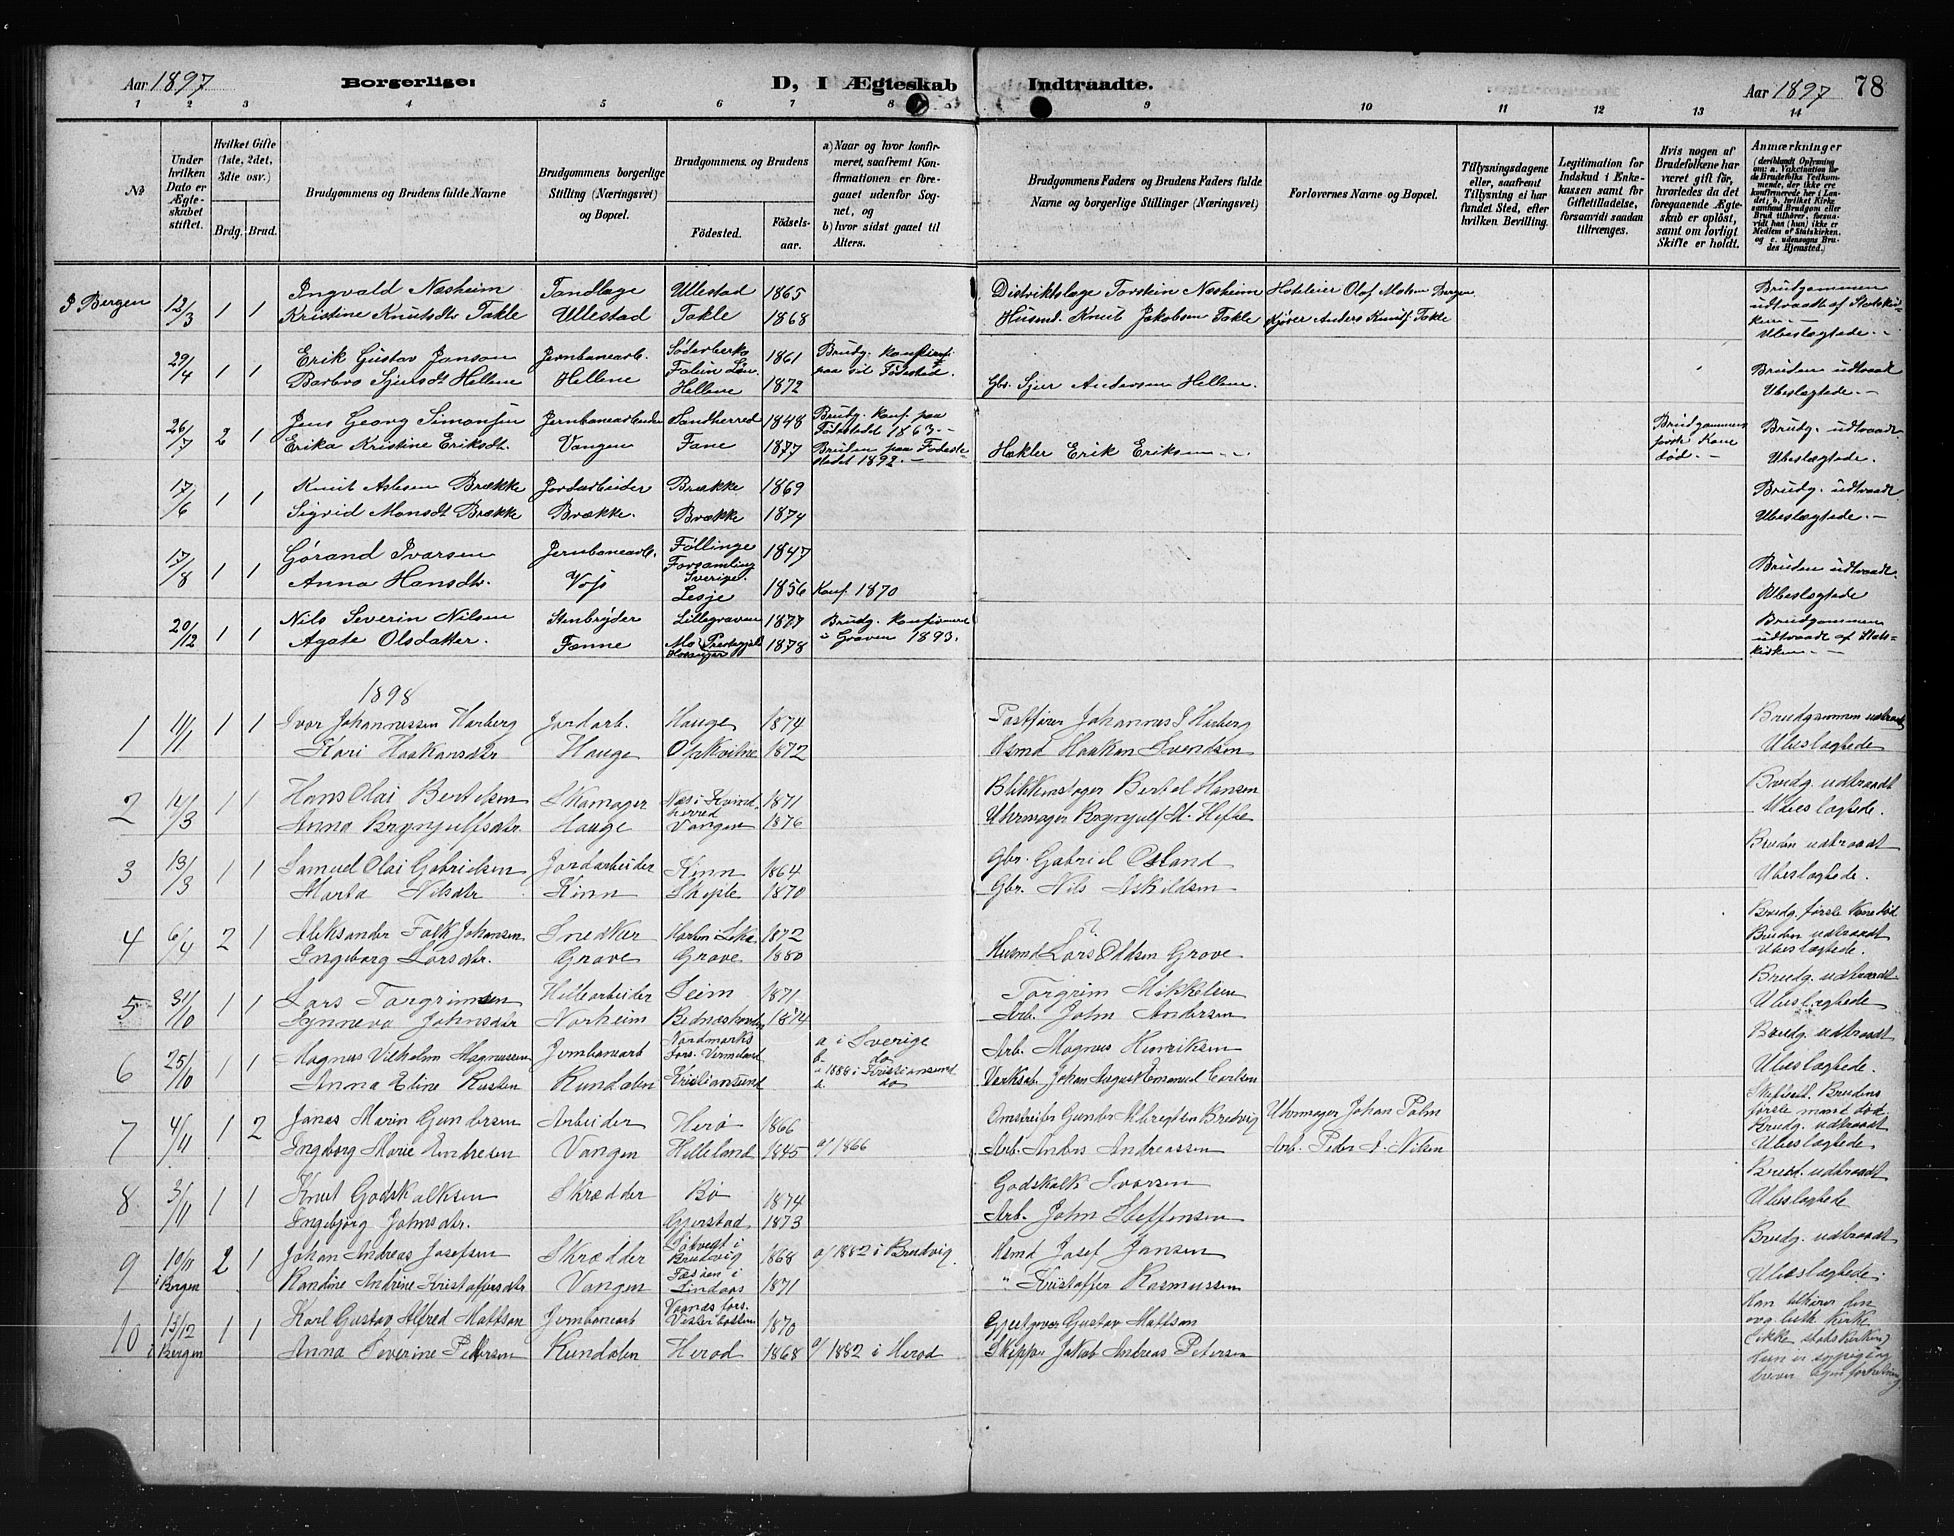 Aar 1897 Borgerlige: D, I Ægteskab Indtraadte. Aar 1897 78
1 2 3 4 5 6 7 8 9 10 11 12 13 14
No
Under hvilken Dato er Ægteskabet stiftet.
Hvilket Gifte (1ste, 2det, 3die osv.)
Brdg. Brud.
Brudgommens og Brudens fulde Navne
Brudgommens borgerlige Stilling (Næringsvei) og Bopæl.
Brudgommens og Brudens
Fødested. Fødselsaar.
a) Naar og hvor konfirmeret, saafremt Konfirmationen er foregaaet udenfor Sognet, og
b) hvor sidst gaaet til Alters.
Brudgommens Faders og Brudens Faders fulde Navne og borgerlige Stillinger (Næringsvei)
Forlovernes Navne og Bopæl.
Tillysningsdagene eller, saafremt Tillysning ei har fundet Sted, efter hvilken Bevilling.
Legitimation for Indskud i Enkekassen samt for Giftetilladelse, forsaavidt saadan tiltrænges.
Hvis nogen af Brudefolkene har været gift før, hvorledes da det foregaaende Ægteskab er opløst, samt om lovligt Skifte er holdt.
Anmærkninger
I Bergen 12/3 1 1 Ingvald Næsheim Tandlæge Ullestad 1865 Distriktslæge Torstein Næsheim Hoteleier Olaf Matsen Bergen Brudgommen
Kristine Knutsdtr Takle Ullestad Takle 1868 Husmd. Knut Jakobsen Takle Kjører Anders Knuts. Takle udtraadt af Statskirken
Ubeslægtede
29/4 1 1 Erik Gustav Janson Jernbanearb. 1861 Brudg. konfirm. Bruden udtraadt
Barbro Sjursdt Hellene Hellene Hellene 1872 paa sit Fødested. Gbr. Sjur Andersen Hellene. Ubeslægtede
26/7 2 1 Jens Georg Simonsen Jernbanearbeider Sandherred 1848 Brudg. konf. paa Fødestedet 1863. Brudgommens første Kone død. Brudg. udtraadt
Erika Kristine Eriksdt. Vangen Fane 1877 Bruden paa Fødestedet 1892. Erik Eriksen Ubeslægtede.
17/6 1 1 Knut Brække Jordarbeider Brække 1869 Brudg. udtraadt
Sigrid Monsdt Brække Brække. Brække 1874 Ubeslægtede.
17/8 1 1 Gørand Ivarsen Jernbanearb. Føllinge Forsamling Sverige. 1847 Bruden udtraadt.
Anna Hansdtr. Voss Lesje 1856 Konf 1870 Ubeslægtede
20/12 1 1 Nils Severin Nilsen Stenbryder Lillegraven 1877 Brudg. konfirmeret Brudgommen
Agate Olsdatter. Fænne Mo 1878 i Graven 1893. udtraadt af Statskirken
1898
1 11/1 1 1 Ivar Johannessen Harberg Jordarb. Hauge 1874 Postfører Johannes I Harberg Brudgommen udtraadt
Kari Haakansdtr Hauge Opkvitne 1872 Hsmd Haakan Svendsen Ubeslægtede
2 14/3 1 1 Hans Olai Bertelsen Skomager Næs i Kvindherred 1871 Blikkenslager Bertel Hansen Brudg. udtraadt
Anna Brynjulfsdtr Hauge Vangen 1876 Uhrmager Brynjulf M. Hefte Ubeslægtede.
3 13/3 1 1 Samuel Olai Gabrielsen Jordarbeider Kinn 1864 Gbr. Gabriel Osland Bruden udtraadt
Marta Nilsdtr Kinn Skeple 1870 Gbr. Nils Askildsen Ubeslægtede.
4 6/4 2 1 Aleksander Falk Johansen Snedker 1872 Brudg. første Kone død
Ingeborg Larsdtr. Grove Grove 1880 Husmd Lars Oddsen Grove Bruden udtraadt Ubeslægtede.
5 31/10 1 1 Lars Torgrimsen Seim 1871 Torgrim Mikkelsen Brudg. udtraadt
Synneva Johnsdtr Norheim 1874 Arb. John Andersen Ubeslægtede
6 25/10 1 1 Magnus Vilhelm Magnussen Jernbanearb Nordmarks Fors. Vermeland a i Sverige Arb. Magnus Henriksen Brudg. udtraadt
b do
Anna Eline Kundalen Kristiansund a 1888 i Kristiansund Johan August Emanuel Carlsen Ubeslægtede.
b do
7 4/11 1 2 Jonas Marin Gundersen Arbeider Herø 1866 Gunder Bredvig Uhrmager Johan Palm Brudens første mand død
Ingeborg Marie Endresen Vangen Helleland 1845 a/ 1866 Arb. Anders Andreassen Arb. Peder A. Nilsen Brudg. udtraadt Ubeslægtede
8 3/11 1 1 Knut Godskalksen Skrædder Bø 1874 Godskalk Ivarsen Brud. udtraadt
Ingebjørg Johnsdtr. Gjerstad 1873 Arb. John Steffensen Ubeslægtede
9 10/11 2 1 Johan Andreas Josefsen Skrædder Bredvig 1868 a/ 1882 i Bredvig. Hsmd Josef Jansen Brudg. udtraadt
i Bergen Kandine Andrine Kristaffersdtr Vangen Lindaas 1871 " Kristaffer Rasmussen Ubeslægtede.
10 13/12 1 1 Karl Gustav Alfred Mattson Jernbanearb Vesterbotten 1870 Gjestgiver Gustav Mattson Han tilhører den
i Bergen Anna Severine Petersen Kundalen Herød 1868 a/ 1882 i Herød Skipper Jakob Andreas Petersen